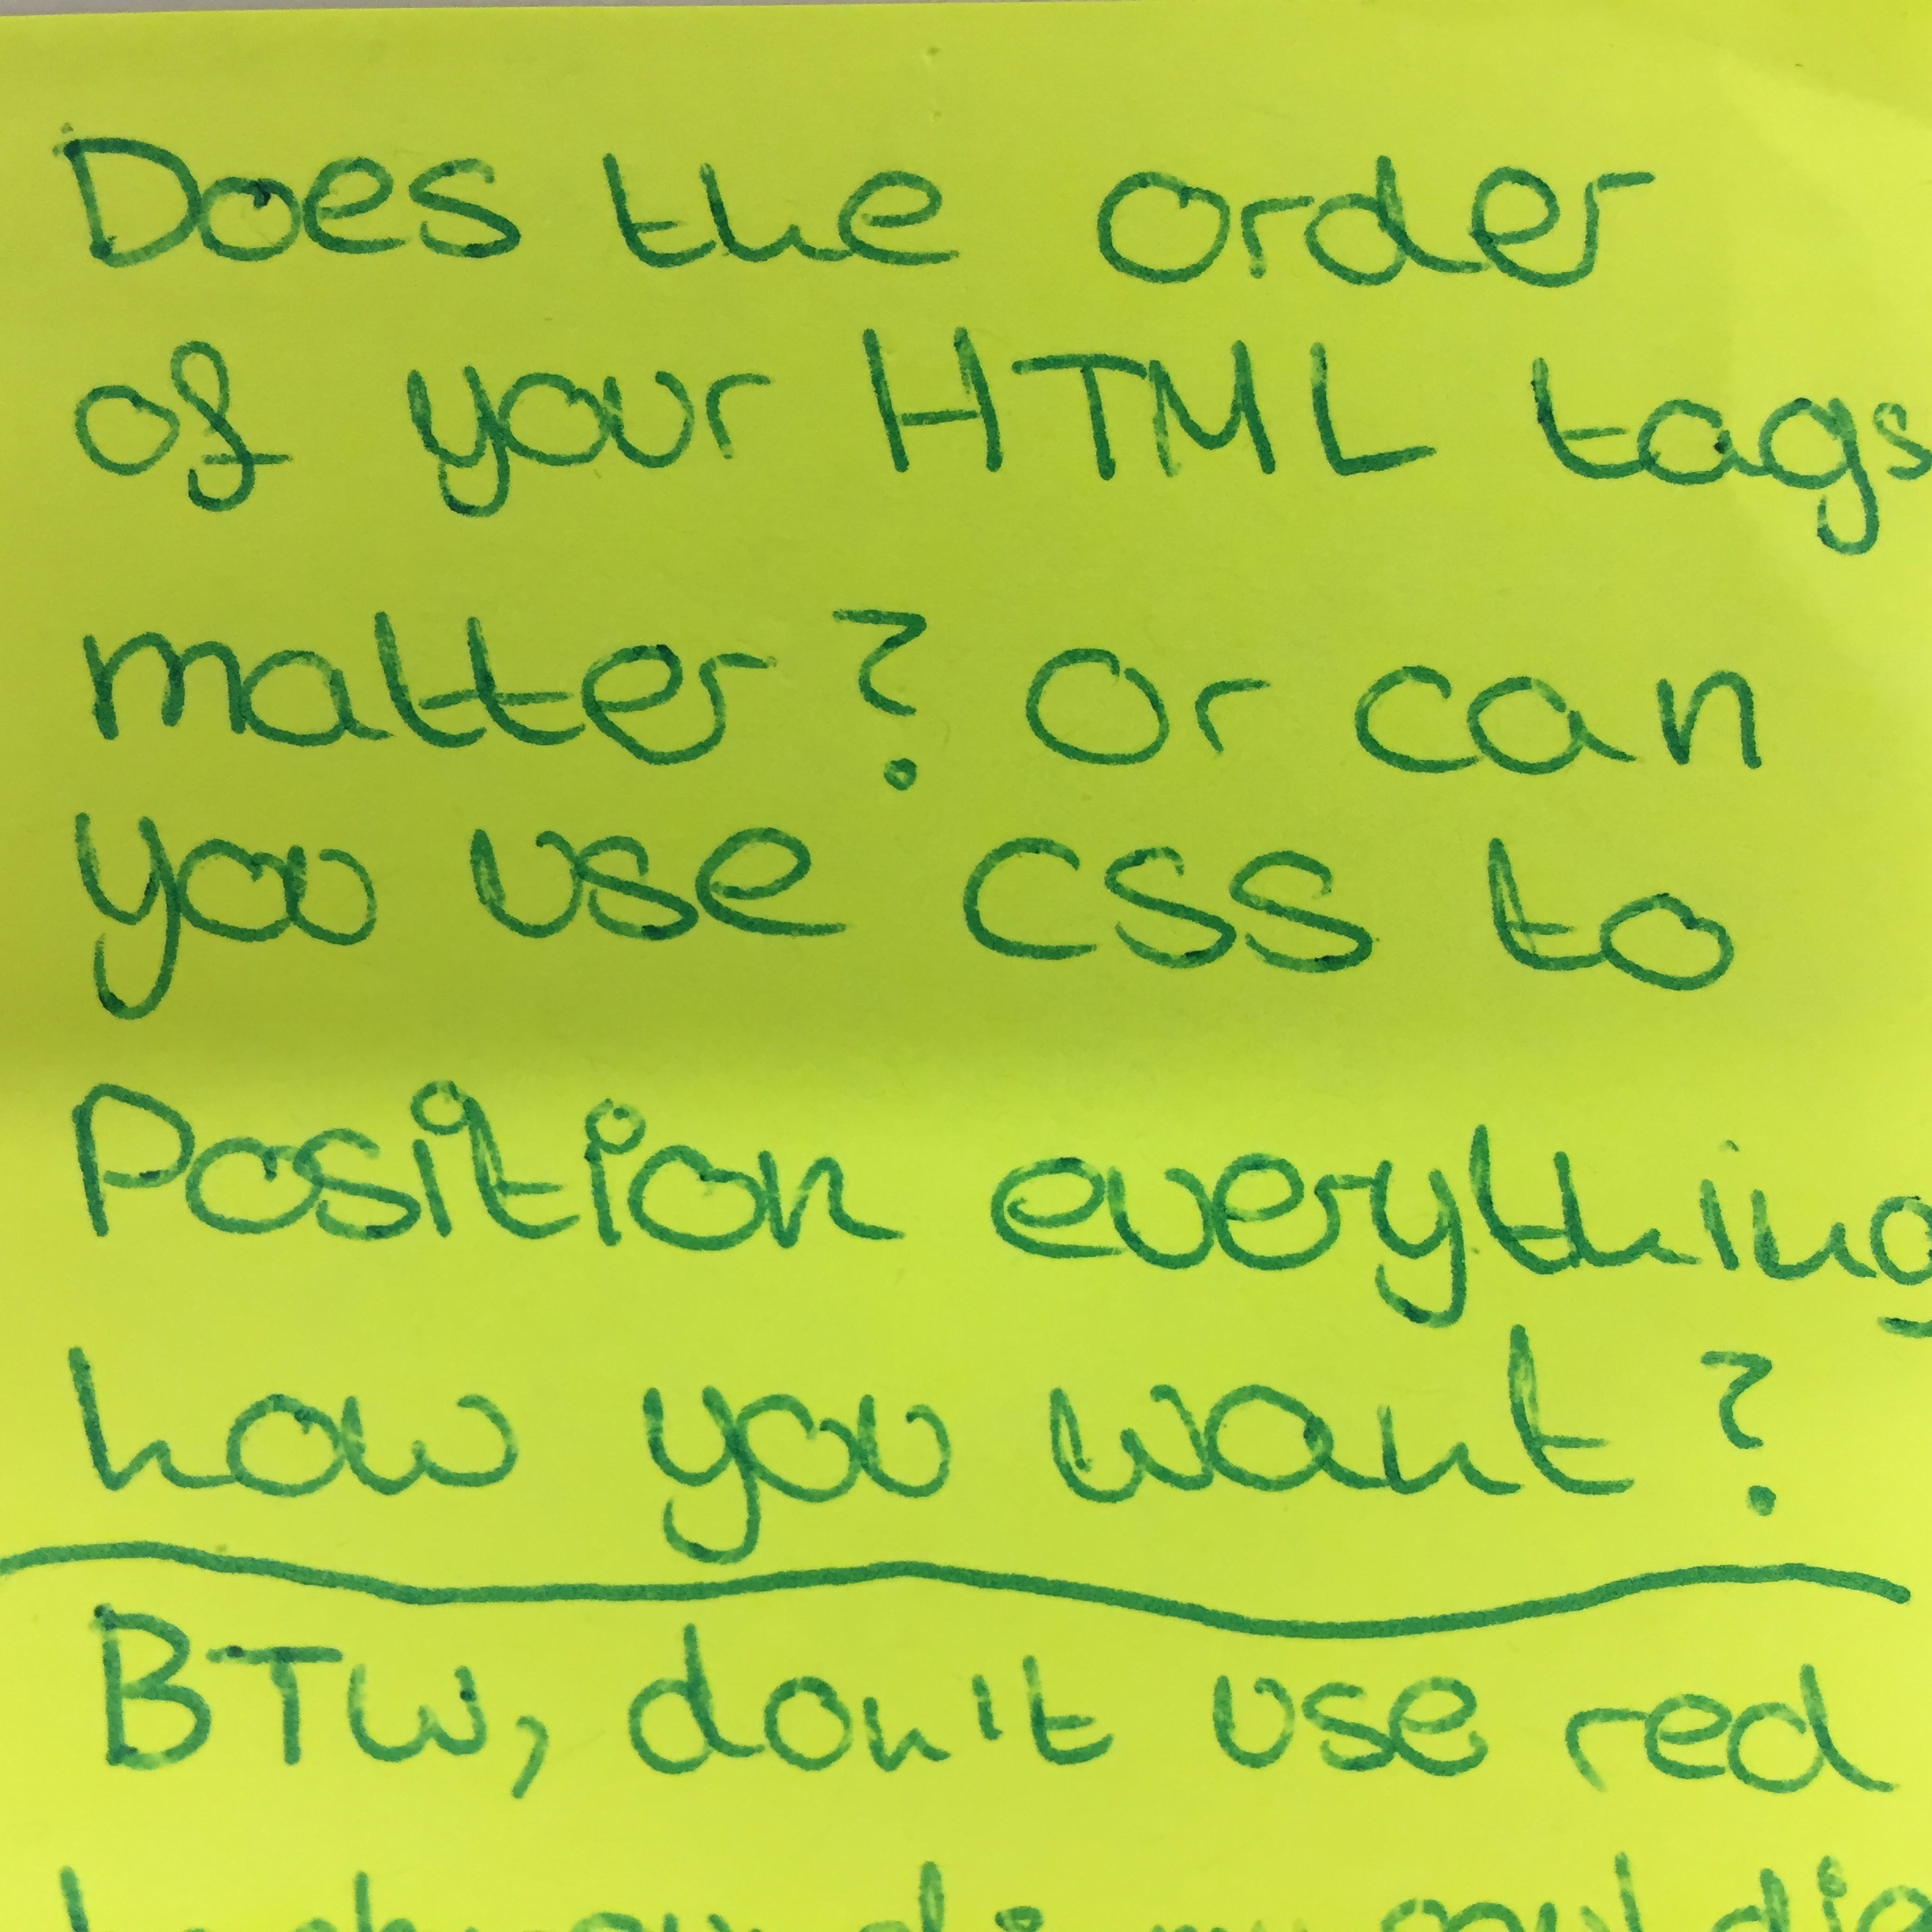 Does the order
of your HTML tags
matter? Or can
you use CSS to
Position everything
how you want?
BTW, don't use red